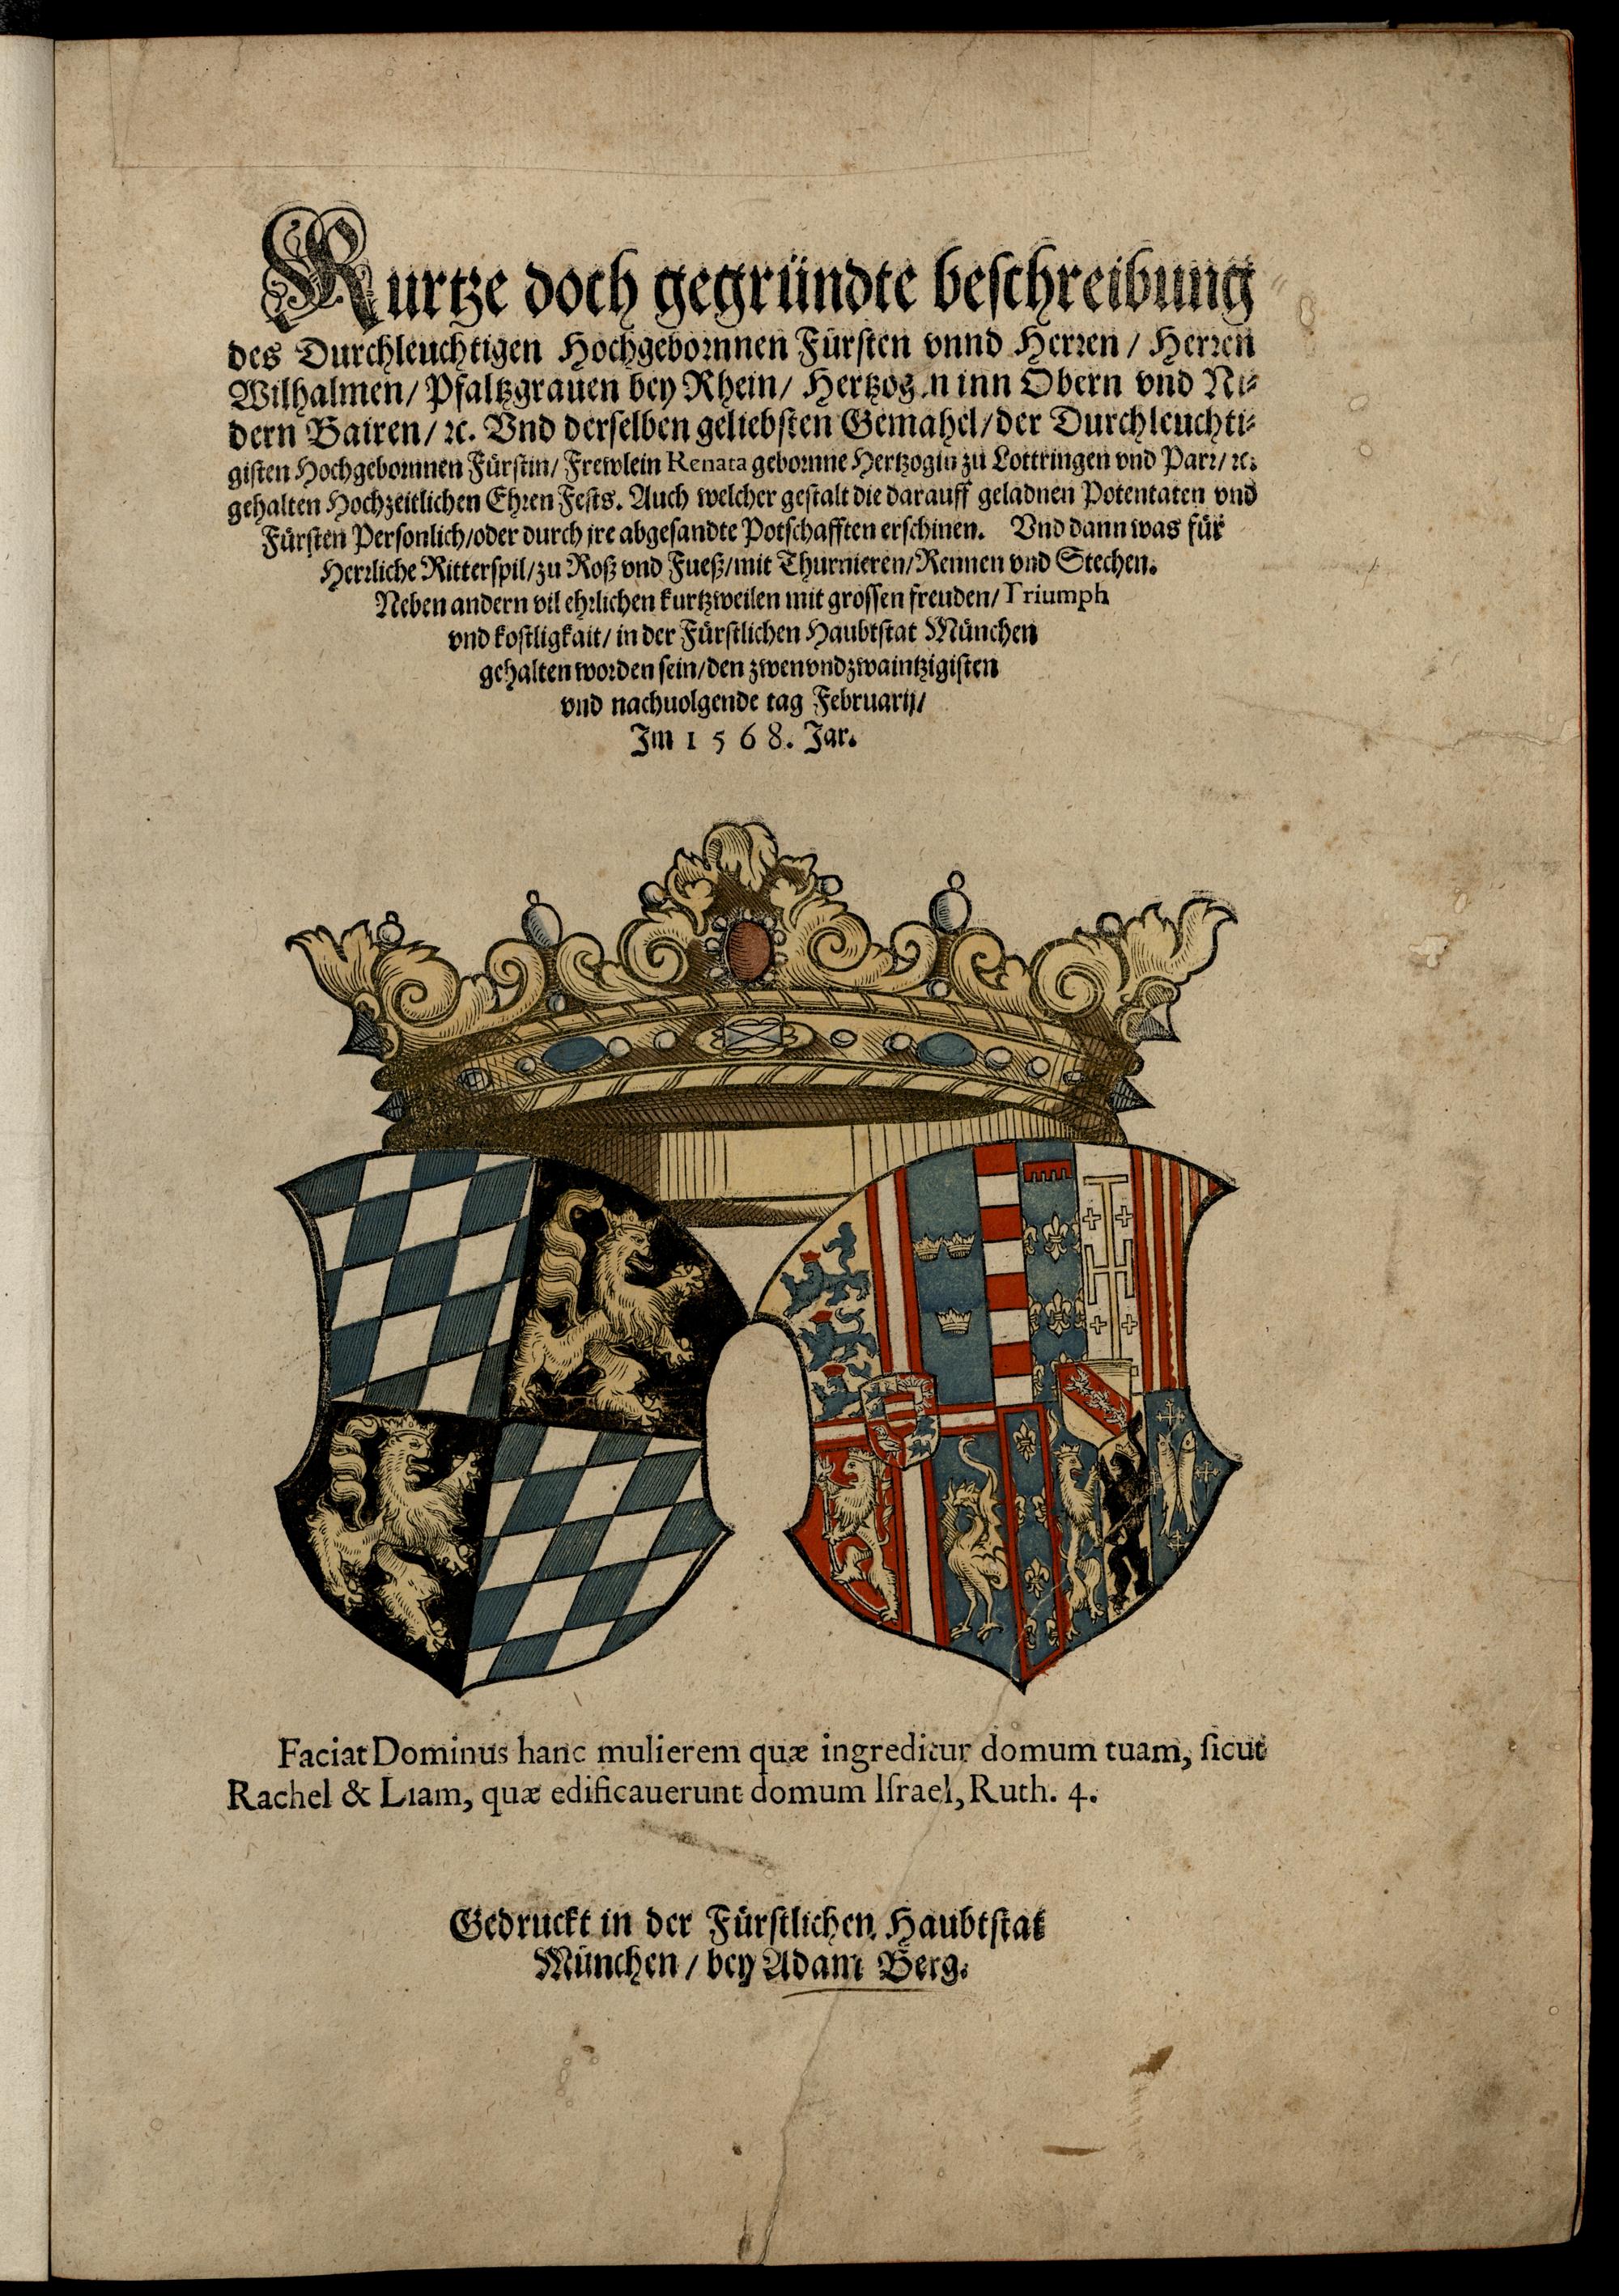 Kurtze doch gegründte beschreibung
des Durchleuchtigen Hochgebornnen Fürsten vnnd Herren / Herren
Wilhalmen / Pfaltzgrauen bey Rhein / Hertzogen inn Obern vnd Ni⸗
dern Bairen / ꝛc. Vnd derselben geliebsten Gemahel / der Durchleuchti⸗
gisten Hochgebornnen Fürstin / Frewlein Renata gebornne Hertzogin zu Lottringen vnd Parr / ꝛc.
gehalten Hochzeitlichen Ehren Fests. Auch welcher gestalt die darauff geladnen Potentaten vnd
Fürsten Personlich / oder durch jre abgesandte Potschafften erschinen. Vnd dann was für
Herrliche Ritterspil / zu Roß vnd Fueß / mit Thurnieren / Rennen vnd Stechen.
Neben andern vil ehrlichen kurtzweilen mit grossen freuden / Triumph
vnd kostligkait / in der Fürstlichen Haubtstat München
gehalten worden sein / den zwenvndzwaintzigisten
vnd nachuolgende tag Februarij /
Im 1568. Jar.
Faciat Dominus hanc mulierem quæ ingreditur domum tuam, sicut
Rachel & Liam, quæ edificauerunt domum Israel, Ruth. 4.
Gedruckt in der Fürstlichen Haubtstat
München / bey Adam Berg.